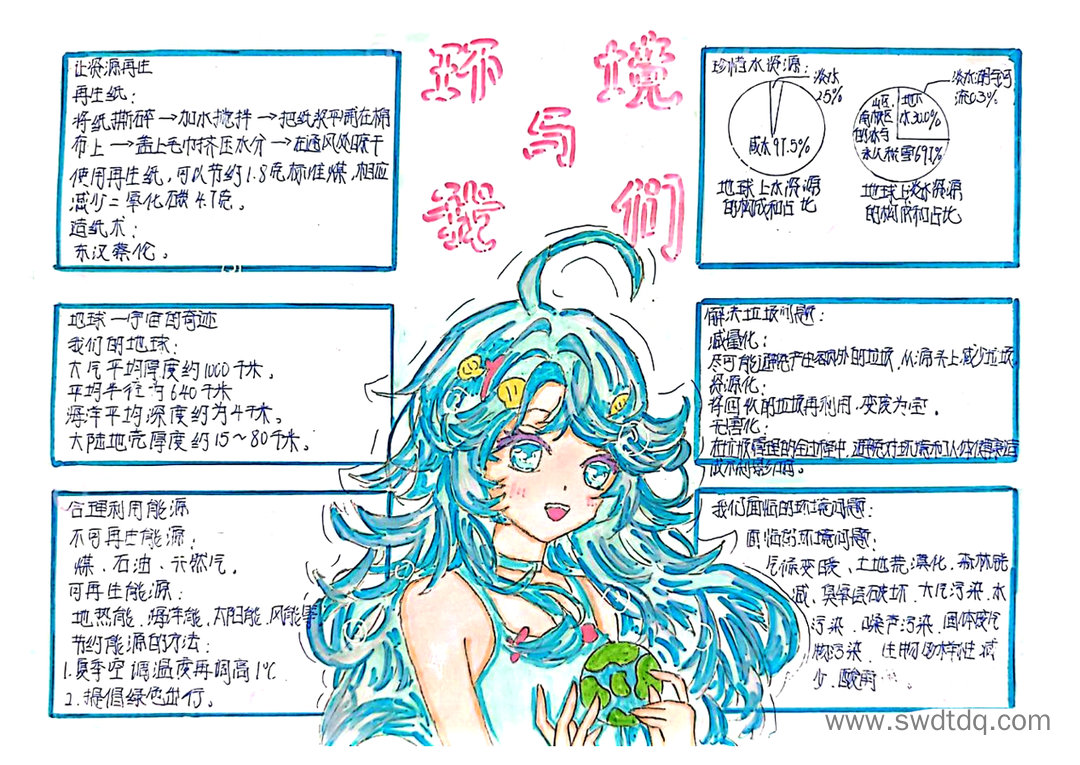 环境
与
我们
让资源再生
再生纸：
将纸撕碎→加水搅拌→把纸浆平铺在棉
布上→盖上毛巾挤压水分→在通风处晾干
使用再生纸，可以节约1.8克标准煤，相应
减少二氧化碳4.7克。
造纸术：
东汉蔡伦。
珍惜水资源：
淡水
2.5%
咸水97.5%
地球上水资源
的构成和占比
淡水湖与河
流0.3%
地下
水30.0%
山区、
南极区
的冰与
永久积雪69.7%
地球上淡水资源
的构成和占比
地球—宇宙的奇迹
我们的地球：
大气平均厚度约1000千米。
平均半径为640千米
海洋平均深度约为4千米。
大陆地壳厚度约15～80千米。
解决垃圾问题：
减量化：
尽可能避免产生额外的垃圾，从源头上减少垃圾
资源化：
将回收的垃圾再利用，变废为宝。
无害化：
在垃圾管理的全过程中，避免对环境和人体健康造
成不利影响。
合理利用能源
不可再生能源：
煤、石油、天然气。
可再生能源：
地热能、海洋能、太阳能、风能等
节约能源的方法：
1.夏季空调温度再调高1℃
2.提倡绿色出行。
我们面临的环境问题：
面临的环境问题：
气候变暖、土地荒漠化、森林锐
减、臭氧层破坏、大气污染、水
污染、噪声污染、固体废
物污染、生物多样性减
少、酸雨
www.swdtdq.com